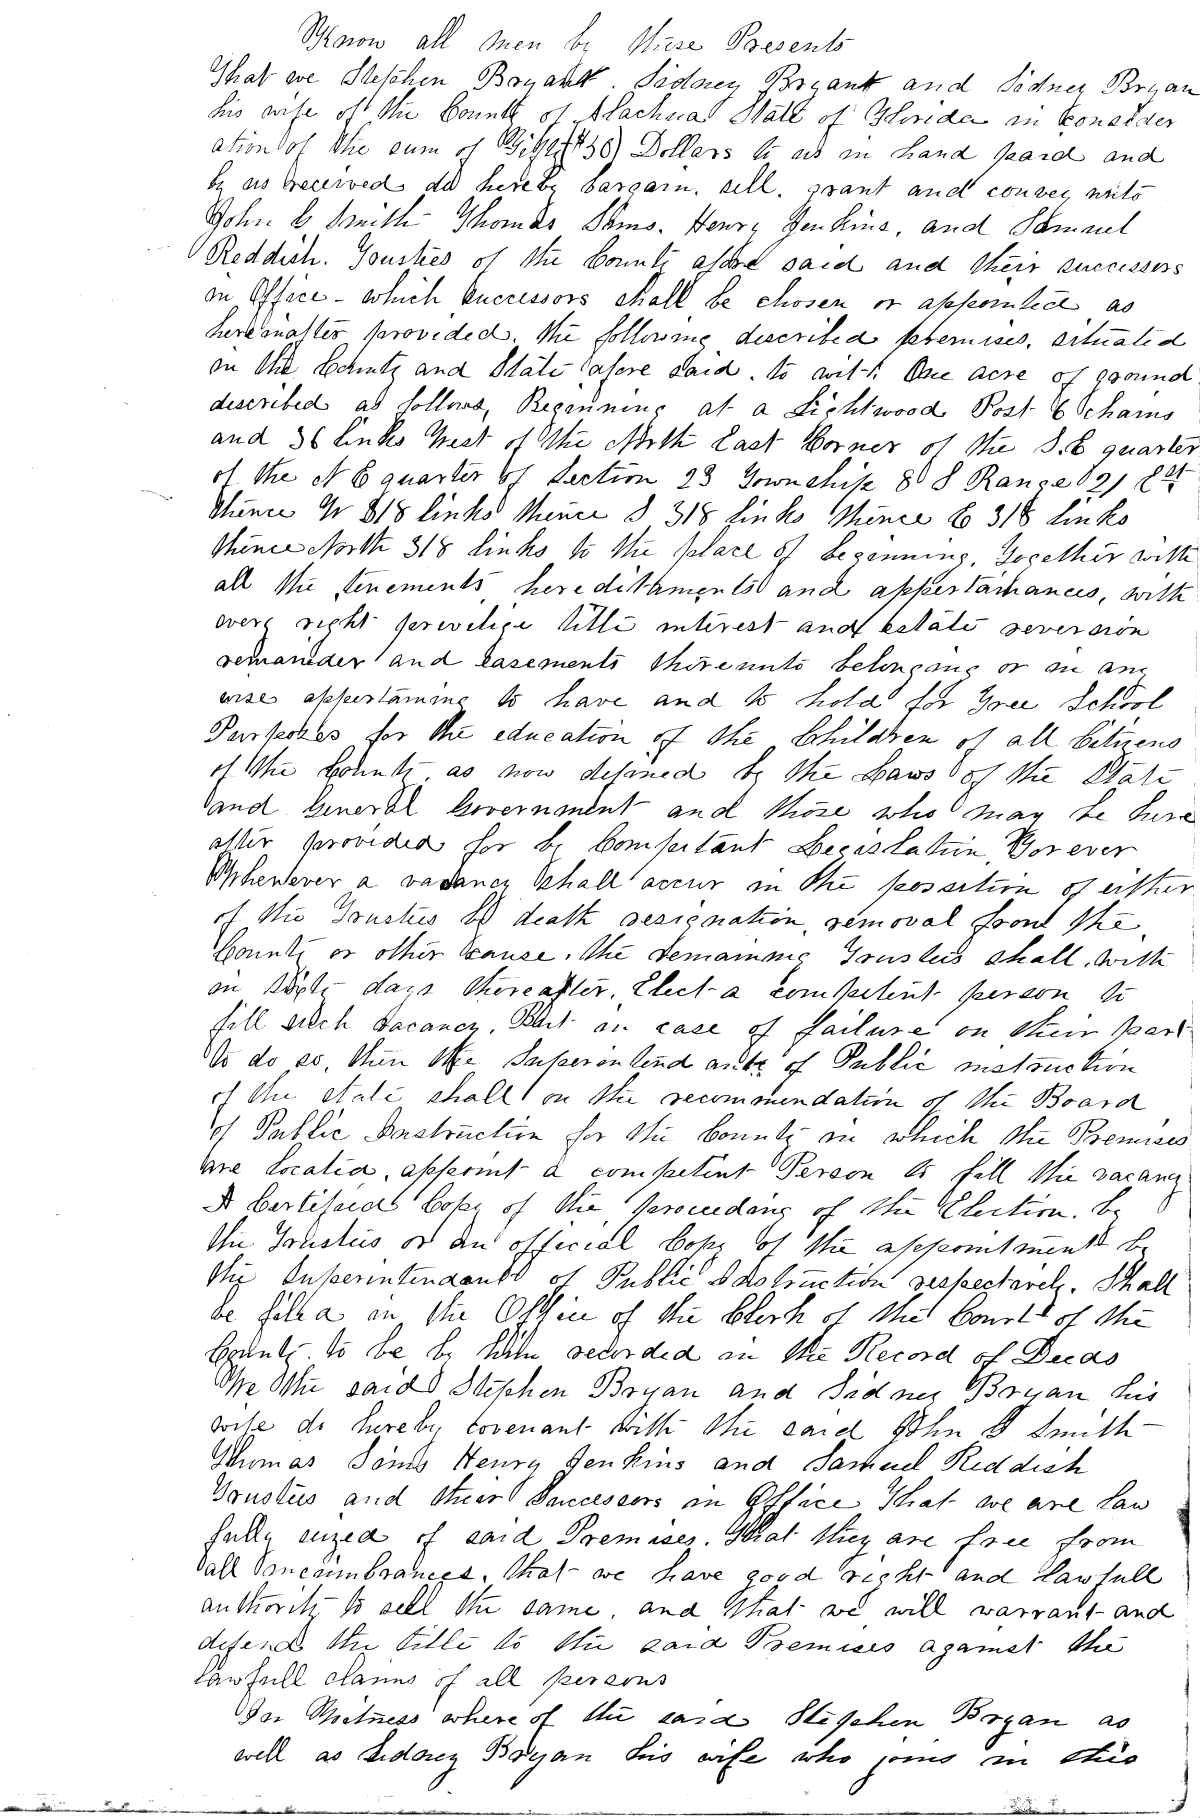 Know all men by these Presents
That we Stephen Bryant. Sidney Bryant and Sidney Bryan
his wife of the County of Alachua State of Florida in consider
ation of the sum of Fifty ($50) Dollars to us in hand paid and
by us received do hereby bargain. sell. grant and convey unto
John C Smith Thomas Sims. Henry Jenkins, and Samuel
Reddish. Trusties of the County afore said and their successors
in Office - which successors shall be chosen or appointed as
hereinafter provided. the following described premises. situated
in the County and State afore said. to wit: One acre of ground
described as follows, Beginning at a Lightwood Post 6 chains
and 36 links West of the North East Corner of the S.E quarter
of the N E quarter of Section 23 Township 8 S Range 21 Est
thence W 318 links thence S 318 links thence E 318 links
thence North 318 links to the place of beginning. Together with
all the tenements hereditaments and appertainances, with
every right privilige title interest and estate reversion
remainder and easements thereunto belonging or in any
wise appertaining to have and to hold for Free School
Purposes for the education of the Children of all Citizens
of the County. as now defined by the Laws of the State
and General Government and those who may be here
after provided for by Competant Legislation Forever
Whenever a vacancy shall accur in the possition of either
of the Trusties by death resignation, removal from the
County or other cause. the remaining Trusteis shall. with
in sixty days thereafter. Elect a competent person to
fill such vacancy. But in case of failure on their part
to do so, then the Superintend ante of Public instruction
of the state shall on the recommendation of the Board
of Public Instruction for the County in which the Premises
are located. appoint a competent Person to fill the vacancy
A Certified Copy of the proceeding of the Election. by
the Trusties or an official Copy of the appointment by
the Superintendant of Public Instruction respectively. Shall
be filed in the Office of the Clerk of the Court of the
County. to be by him recorded in the Record of Deeds
We the said Stephen Bryan and Sidney Bryan his
wife do hereby covenant with the said John Smith
Thomas Sims Henry Jenkins and Samuel Reddish
Trusties and their Successors in Office That we are law
fully seized of said Premises. That they are free from
all incumbrances. that we have good right and lawfull
authority to sell the same. and that we will warrant and
defend the title to the said Premises against the
lawfull claims of all persons
In Witness where of the said Stephen Bryan as
well as Sidney Bryan his wife who joins in this